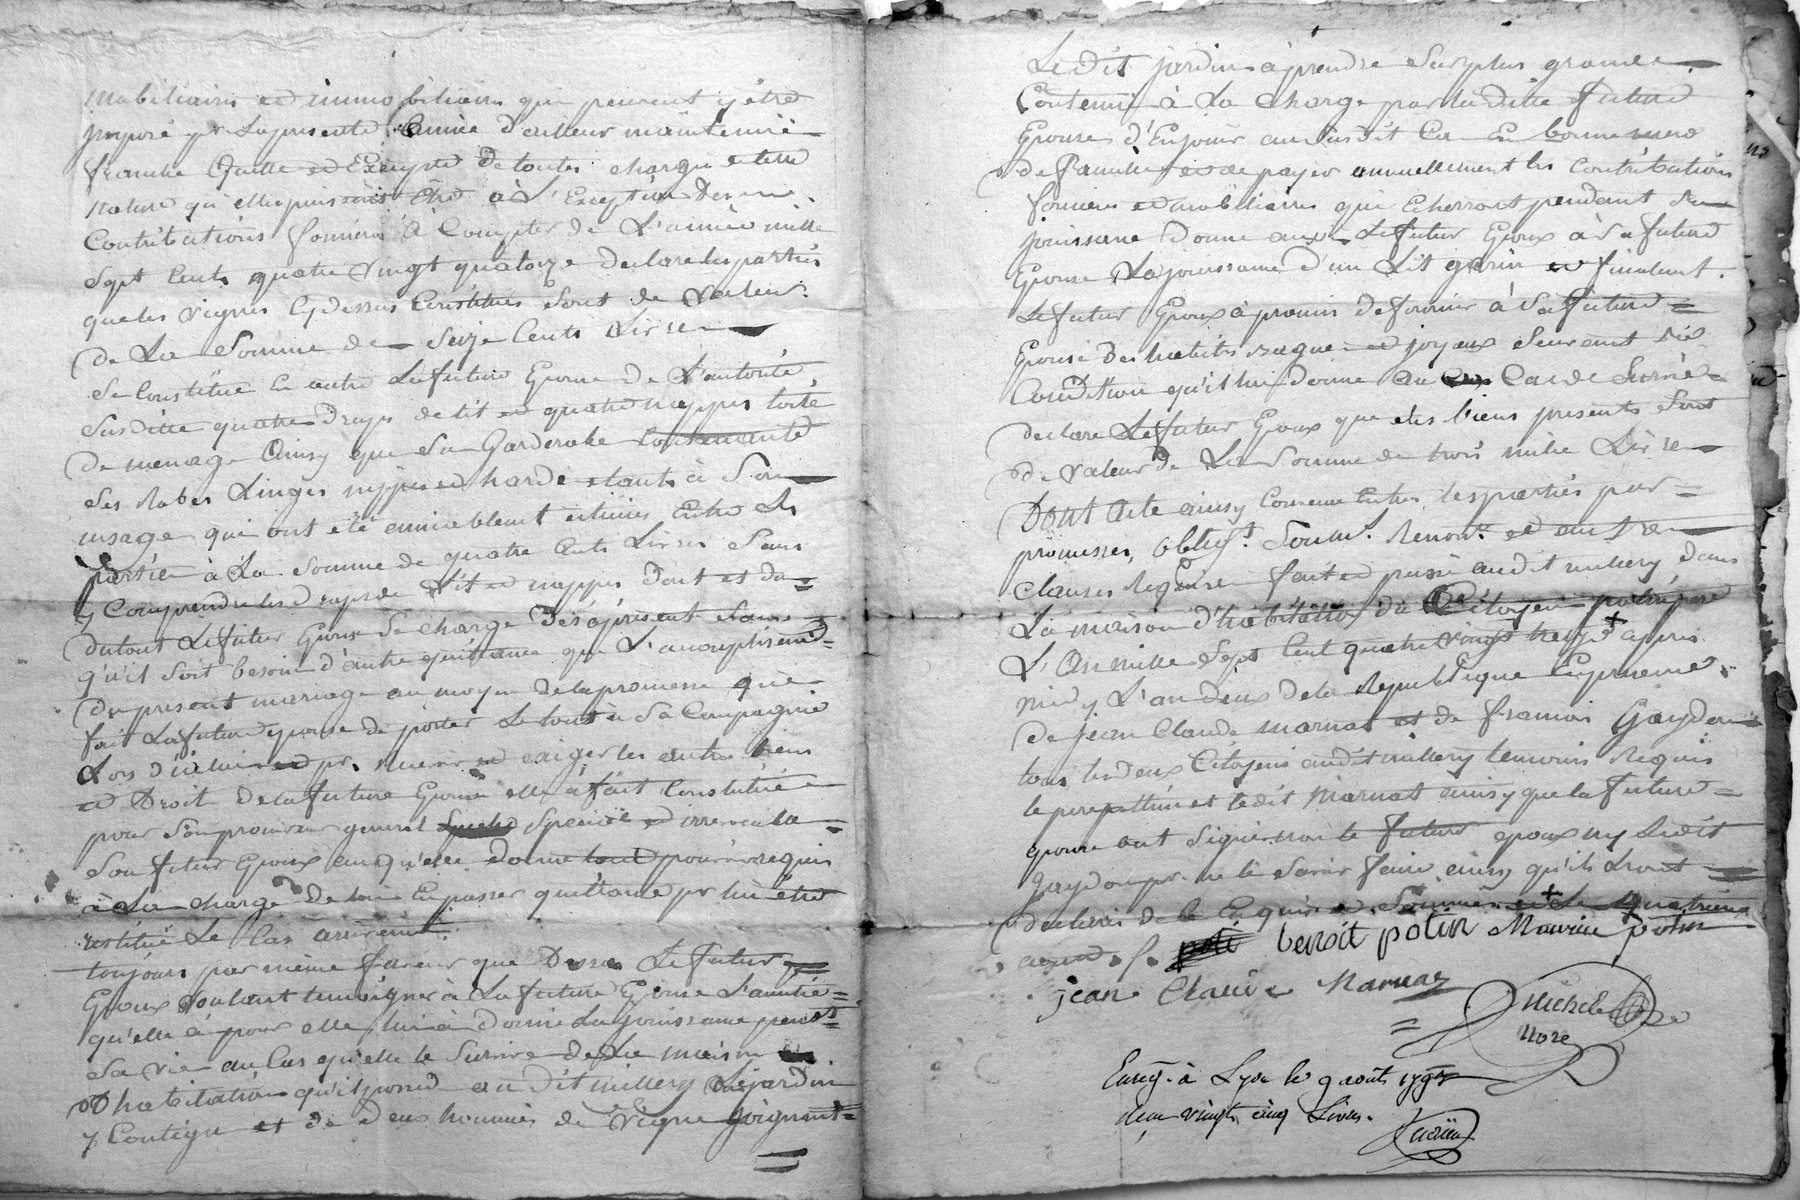 mobiliaires et immobiliaires qui peuvent y être
imposé pr la presente année d'ailleur maintenüe
franche quitte et Exempte de toutes charge et telle
nature qu'elles puissent être à L'Exception Des
Contributions foncière à Compter de L'année mille
sept Cents quatre vingt quatorze declare les parties
que les vignes cy dessus Constitués sont de valeur
de La Somme de Seize Cents Livre
Se Constitue En outre La future Epouse de L'autorité
susditte quatre Draps de lit et quatre nappes toile
de menage Ainsy que Sa Garderobe Contenante
Ses Robes Linges nippes et harde etants à Son
usage qui ont eté amiablement estimés Entre Les
partie à La Somme de quatre Cents Livres Sans
y Comprendre les Draps de Lit et nappes Dont et du
dutout Le futur Epoux Se charge Dès àpresent Sans
qu'il soit besoin d'autre quittance que L'accomplissement
Du present mariage au moyen de la promesse que
fait La future epouse de porter Le tout à Sa Compagnie
Lors d'iceluy et pr et exiger les autres biens
et Droit de la future Epouse elle a fait Constitué
pour Son procureur general Special et irrevocable
Son futur Epoux auqu'elle donne tout pouvoir requis
à La charge de En passer quittance pr lui être
restitué Le Cas arrivant
toujours par même faveur que Dessus Le futur
Epoux voulant temoigner à La future Epouse L'amitié
qu'elle à pour elle lui à Donné La jouissance pendt
Sa vie au Cas qu'elle le Survive de La maison
D'habitation qu'il possed au dit millery Le jardin
y Contigu et de Deux hommés de vigne joignant
Le dit jardin à prendre Sur plus grande
Contenu à La charge par la ditte future
Epouse d'En jouir au susdit Cas En bonne mere
de famille et de payer annuellement les Contributions
foncieres et mobiliaires qui Echerront pendant Sa
jouissance Donne aussi Le futur Epoux à Sa future
Epouse La jouissance d'un Lit garni et finalemt
Le futur Epoux à promis de fournir à Sa future
Epouse Des habits bague et joyaux Seurant Sa
Condition qu'il lui donne au Cas de Survie
declare Le futur Epoux que Ses biens presents sont
de valeur de La Somme de trois mille Livre
Dont Acte ainsy Convenu Entre les parties par
promesses, obligt. Soumt. Renont. et autre
clauses Requise fait et passé audit millery dans
La maison d'habitation du Citoyen potin pere
L'An mille Sept Cent quatre vingt treize + après
midy L'an deux de la Republique En presence
de jean Claude Marnat et de francois Gaydon
tous les deux Citoyens audit millery temoins Requis
le pere potin et ledit Marnat ainsy que la future
epouse ont signé non le futur epoux ny Ledit
Gaydon pr ne le Savoir faire ainsy qu'ils L'ont
declarés de ce Enquis et Sommés + Le quatrieme
aoust. /.
benoit potin Maurice potin
jean Claude Marnaz
Michel
nore
Enreg. à Lyon le 9 août 1793
Reçu vingt cinq Livres.